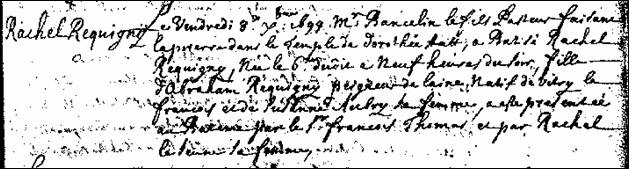 Rachel Requigny
Le Vendredi 8.e x.bre 1699 Mr. Bancelin le fils Pasteur faisant
la prierre dans le Temple de Dorothée Statt, a Batisé Rachel
Requigny, Née le 6.e dudit a Neuf heures du soir, fille
d'Abraham Requigny peigneur de laine, Natif de vitry le
francois et de Susanne Aubry sa femme, a esté presentée
au Bateme par le Sr. francois Thomas, et par Rachel
le Jeune sa femme,